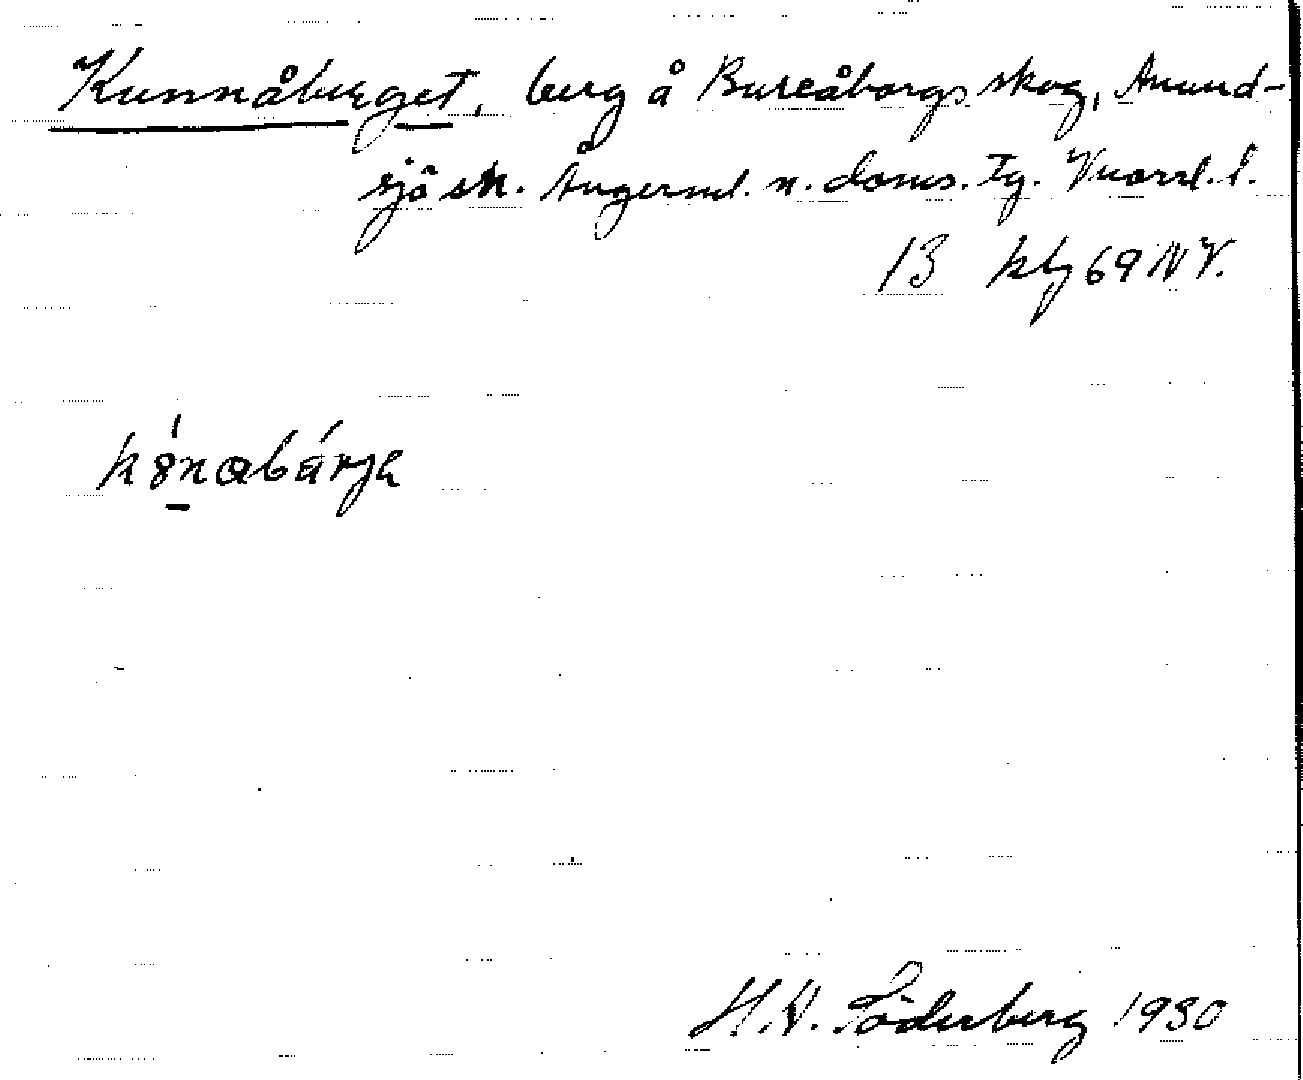 Kunnåberget, berg å Bureåborgs skog, Anund-
sjö sn. Ångerml. n. doms. Tg. Vnorrl. l.
13 kbl 69 NV.
H. V. Söderberg 1930